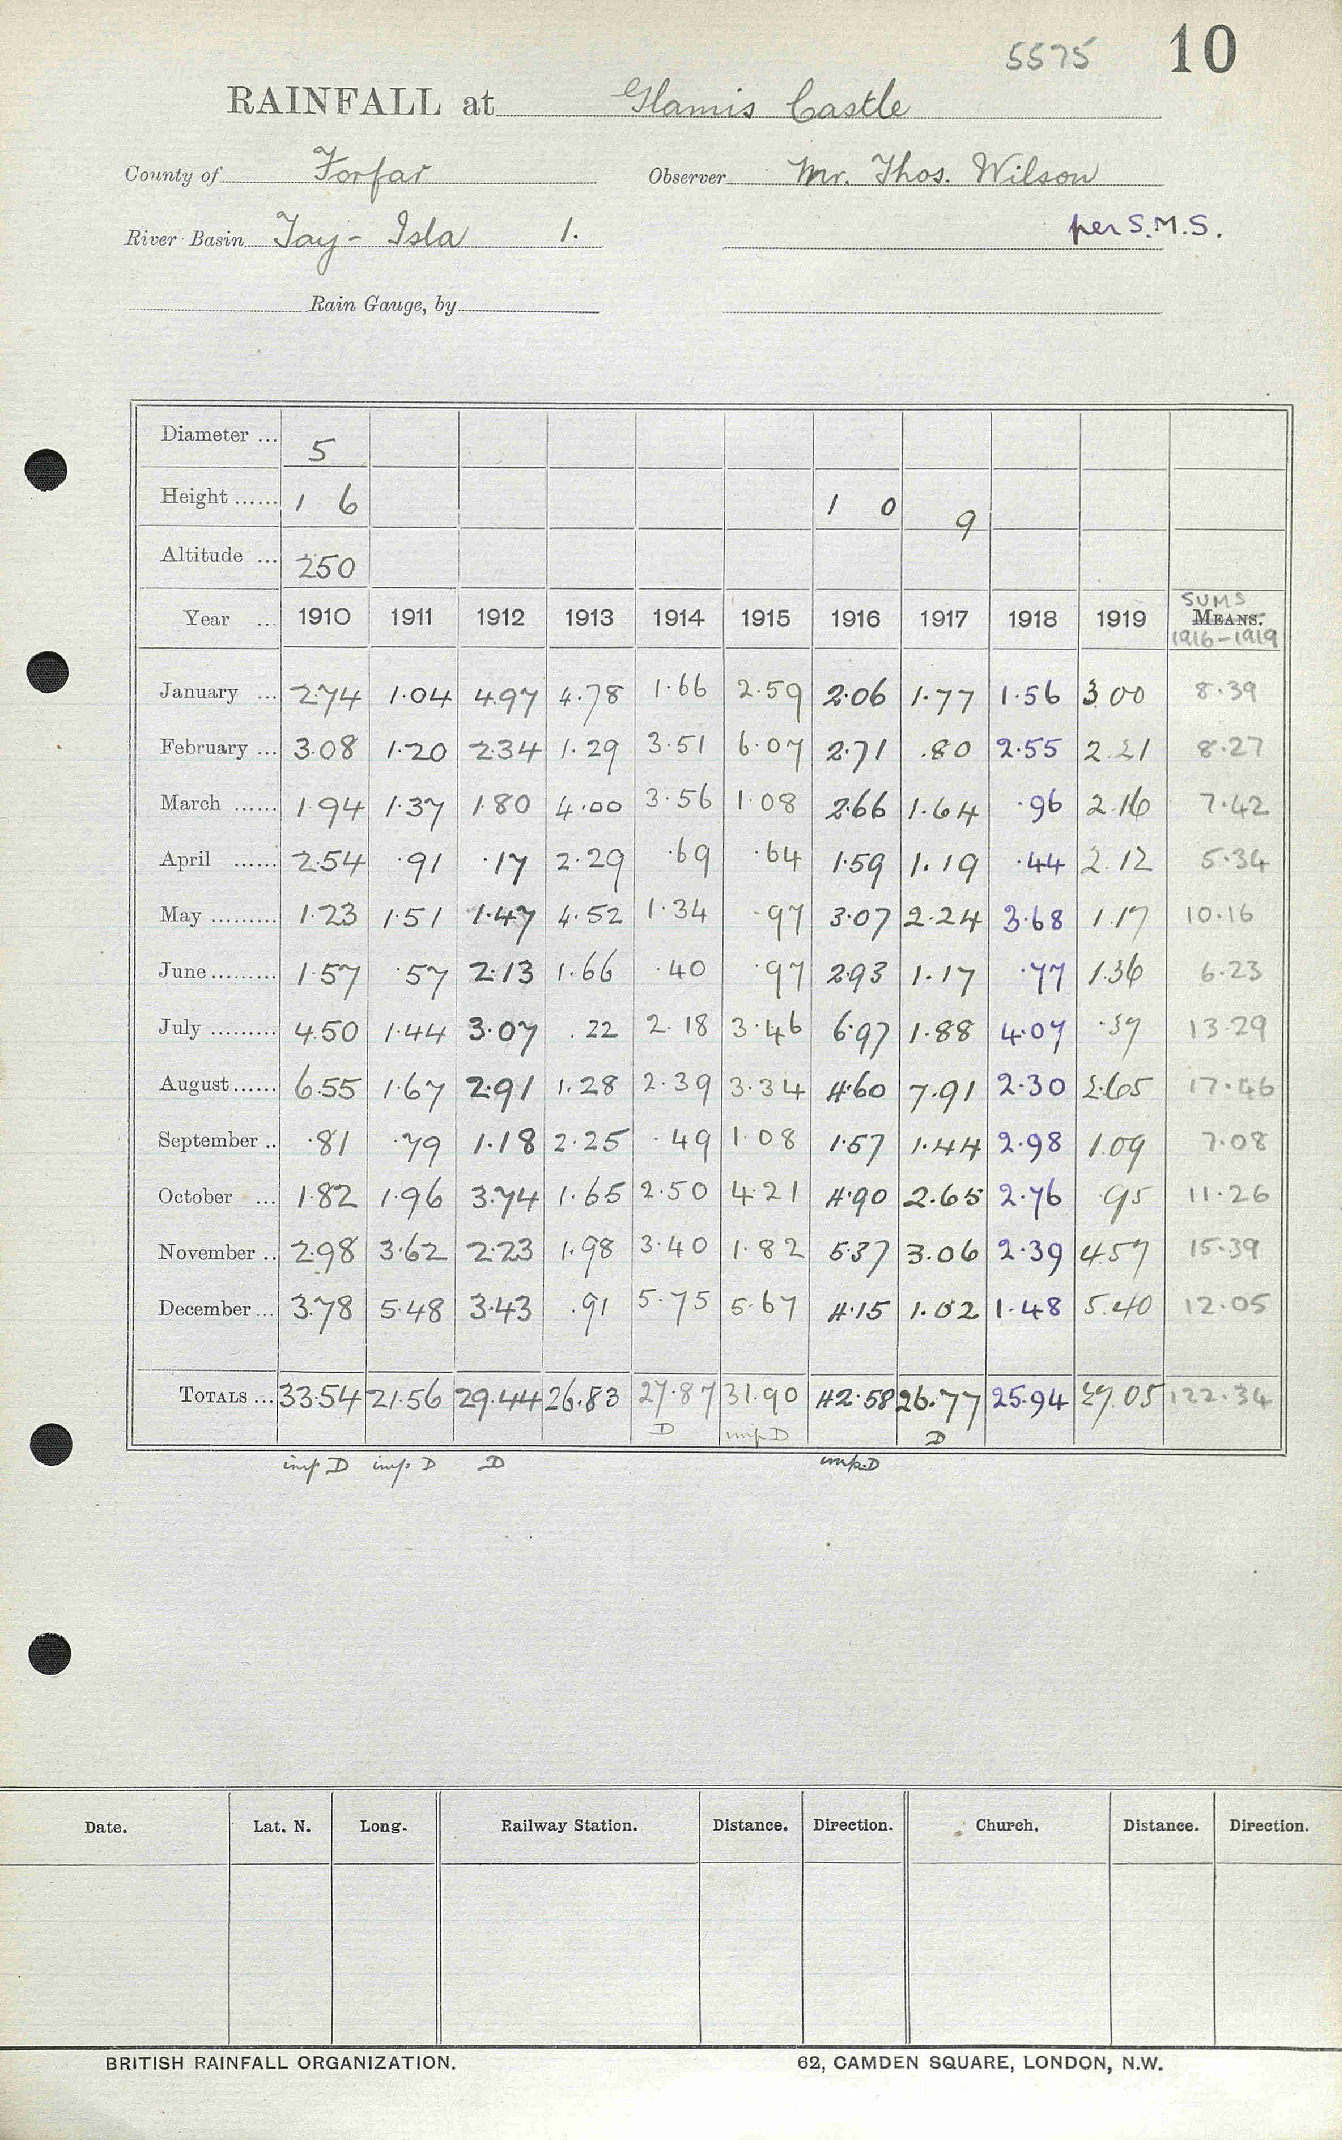 5575 10
RAINFALL at Glamis Castle
County of Forfar Observer Mr. Thos. Wilson
River Basin Tay - Isla 1. per S.M.S.
Rain Gauge, by
Diameter ... 5
Height ...... 1 6 1 0 9
Altitude ... 250
SUMS
Year ... 1910 1911 1912 1913 1914 1915 1916 1917 1918 1919 MEANS.
1916-1919
January ... 2.74 1.04 4.97 4.78 1.66 2.59 2.06 1.77 1.56 3.00 8.39
February ... 3.08 1.20 2.34 1.29 3.51 6.07 2.71 .80 2.55 2.21 8.27
March ...... 1.94 1.37 1.80 4.00 3.56 1.08 2.66 1.64 .96 2.16 7.42
April ...... 2.54 .91 .17 2.29 .69 .64 1.59 1.19 .44 2.12 5.34
May ......... 1.23 1.51 1.47 4.52 1.34 .97 3.07 2.24 3.68 1.17 10.16
June ......... 1.57 .57 2.13 1.66 .40 .97 2.93 1.17 .77 1.36 6.23
July ......... 4.50 1.44 3.07 .22 2.18 3.46 6.97 1.88 4.07 .37 13.29
August ...... 6.55 1.67 2.91 1.28 2.39 3.34 4.60 7.91 2.30 2.65 17.46
September .. .81 .79 1.18 2.25 .49 1.08 1.57 1.44 2.98 1.09 7.08
October ... 1.82 1.96 3.74 1.65 2.50 4.21 4.90 2.65 2.76 .95 11.26
November .. 2.98 3.62 2.23 1.98 3.40 1.82 5.37 3.06 2.39 4.57 15.39
December ... 3.78 5.48 3.43 .91 5.75 5.67 4.15 1.02 1.48 5.40 12.05
TOTALS ... 33.54 21.56 29.44 26.83 27.87 31.90 42.58 26.77 25.94 27.05 122.34
D imp D D
imp D imp D D imp. D
Date. Lat. N. Long. Railway Station. Distance. Direction. Church. Distance. Direction.
BRITISH RAINFALL ORGANIZATION. 62, CAMDEN SQUARE, LONDON, N.W.